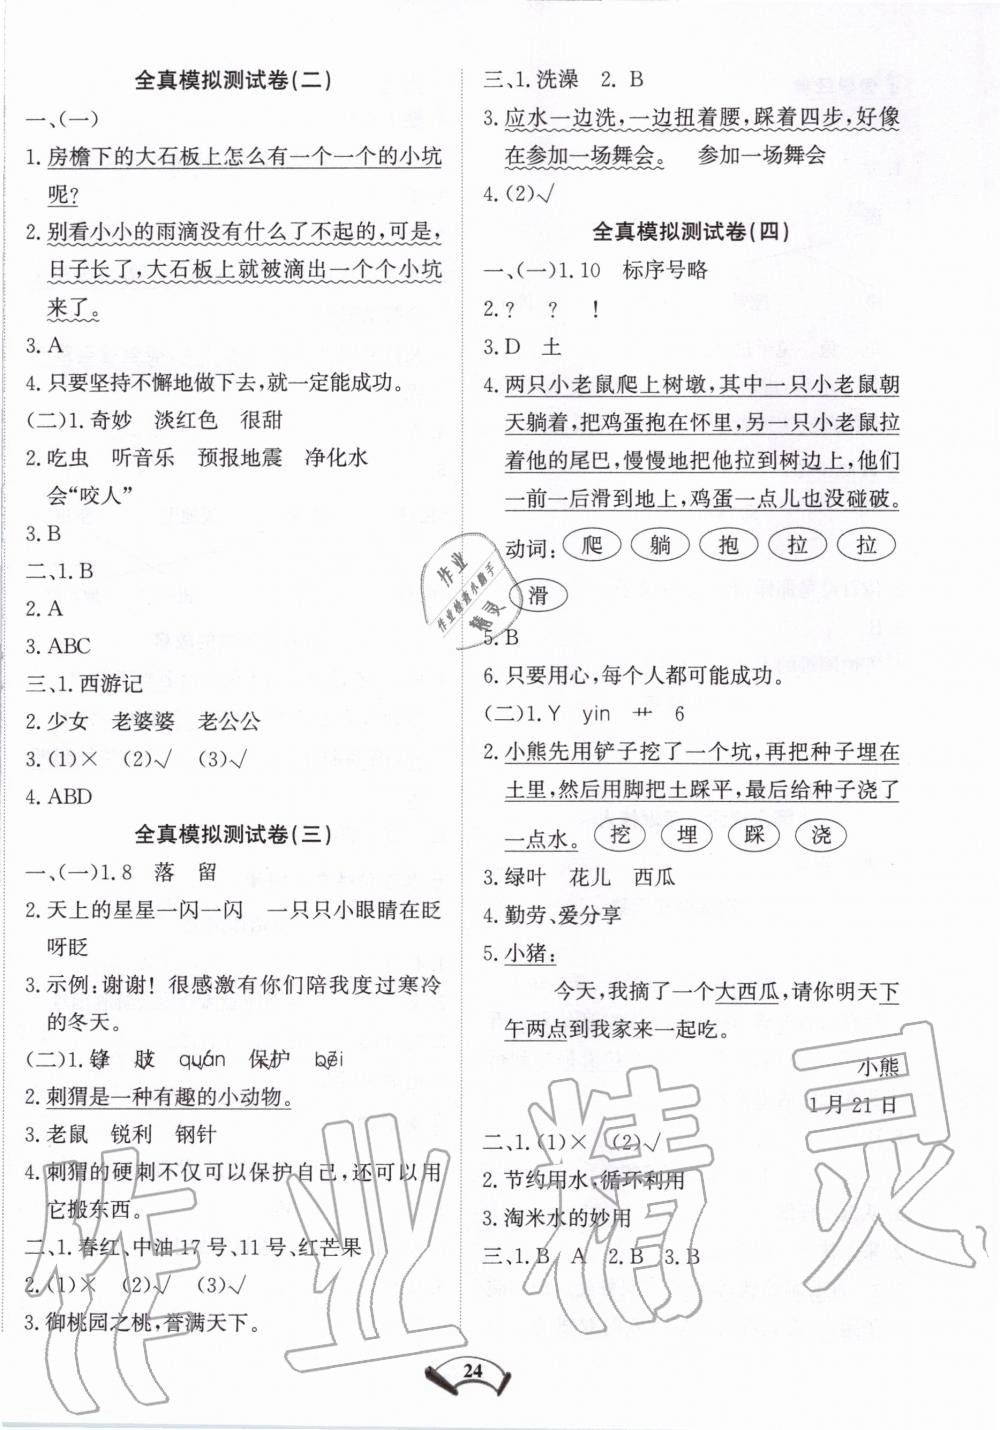 全真模拟测试卷(二)
一、(一)
1. 房檐下的大石板上怎么有一个一个的小坑
呢?
2. 别看小小的雨滴没有什么了不起的,可是,
日子长了,大石板上就被滴出一个个小坑
来了。
3. A
4. 只要坚持不懈地做下去,就一定能成功。
(二)1. 奇妙 淡红色 很甜
2. 吃虫 听音乐 预报地震 净化水
会“咬人”
3. B
二、1. B
2. A
3. ABC
三、1. 西游记
2. 少女 老婆婆 老公公
3. (1)× (2)√ (3)√
4. ABD
全真模拟测试卷(三)
一、(一)1. 8 落 留
2. 天上的星星一闪一闪 一只只小眼睛在眨
呀眨
3. 示例:谢谢! 很感激有你们陪我度过寒冷
的冬天。
(二)1. 锋 肢 quán 保护 bēi
2. 刺猬是一种有趣的小动物。
3. 老鼠 锐利 钢针
4. 刺猬的硬刺不仅可以保护自己,还可以用
它搬东西。
二、1. 春红、中油 17 号、11 号、红芒果
2. (1)× (2)√ (3)√
3. 御桃园之桃,誉满天下。
三、1. 洗澡 2. B
3. 应水一边洗,一边扭着腰,踩着四步,好像
在参加一场舞会。 参加一场舞会
4. (2)√
全真模拟测试卷(四)
一、(一)1. 10 标序号略
2. ? ? !
3. D 土
4. 两只小老鼠爬上树墩,其中一只小老鼠朝
天躺着,把鸡蛋抱在怀里,另一只小老鼠拉
着他的尾巴,慢慢地把他拉到树边上,他们
一前一后滑到地上,鸡蛋一点儿也没碰破。
动词: 爬 躺 抱 拉 拉
滑
5. B
6. 只要用心,每个人都可能成功。
(二)1. Y yin 艹 6
2. 小熊先用铲子挖了一个坑,再把种子埋在
土里,然后用脚把土踩平,最后给种子浇了
一点水。 挖 埋 踩 浇
3. 绿叶 花儿 西瓜
4. 勤劳、爱分享
5. 小猪:
今天,我摘了一个大西瓜,请你明天下
午两点到我家来一起吃。
小熊
1 月 21 日
二、1. (1)× (2)√
2. 节约用水,循环利用
3. 淘米水的妙用
三、1. B A 2. B 3. B
24
作业
作业检查小助手
精灵
作业精灵